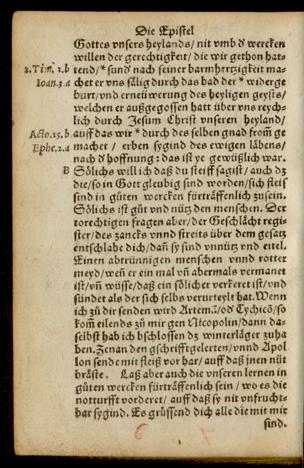 Die Epistel
Gottes vnsers heylands/ nit vmb ď wercken
willen der gerechtigkeit/ die wir gethon hat-
2. Tim. 1. b tend/ * sunď nach seiner barmhertzigkeit ma-
Ioan. 3. a chet er vns sälig durch das bad der * widerge
burt/ vnd erneüwerung des heyligen geysts/
welchen er außgegossen hatt über vns reych-
lich durch Jesum Christ vnseren heyland/
Acto. 15. b. auff das wir * durch des selben gnad from̃ ge
Ephe. 2. a machet / erben sygind des ewigen läbens/
nach ď hoffnung : das ist ye gewüßlich war.
B Sölichs will ich daß du steiff sagist/ auch dz
die/ so in Gott gleubig sind worden/ sich fleis
sind in gůten wercken fürträffenlich zusein.
Sölichs ist gůt vnd nütz den menschen. Der
torechtigen fragen aber/ der Geschlächt regi-
ster/ des zancks vnnd streits über dem gesatz
entschlahe dich/ dañ sy sind vnnütz vnd eitel.
Einen abtrünnigen menschen vnnd rotter
meyd/ weñ er ein mal vñ abermals vermanet
ist/ vñ wüsse/ daß ein sölicher verkeret ist/ vnd
sündet als der sich selbs verurteylt hat. Wenn
ich zů dir senden wird Artemã/ oď Tychicõ/ so
kom̃ eilends zů mir gen Nicopolin/ dann da-
selbst hab ich bschlossen dz winterläger zuha
ben. Zenan den gschrifftgelerten/ vnnd Apol
lon sende mit fleiß vor har/ auff daß jnen nüt
bräste. Laß aber auch die vnseren lernen in
gůten wercken fürträffenlich sein / wo es die
notturfft vorderet/ auff daß sy nit vnfrucht-
bar sygind. Es grüssend dich alle die mit mir
sind.